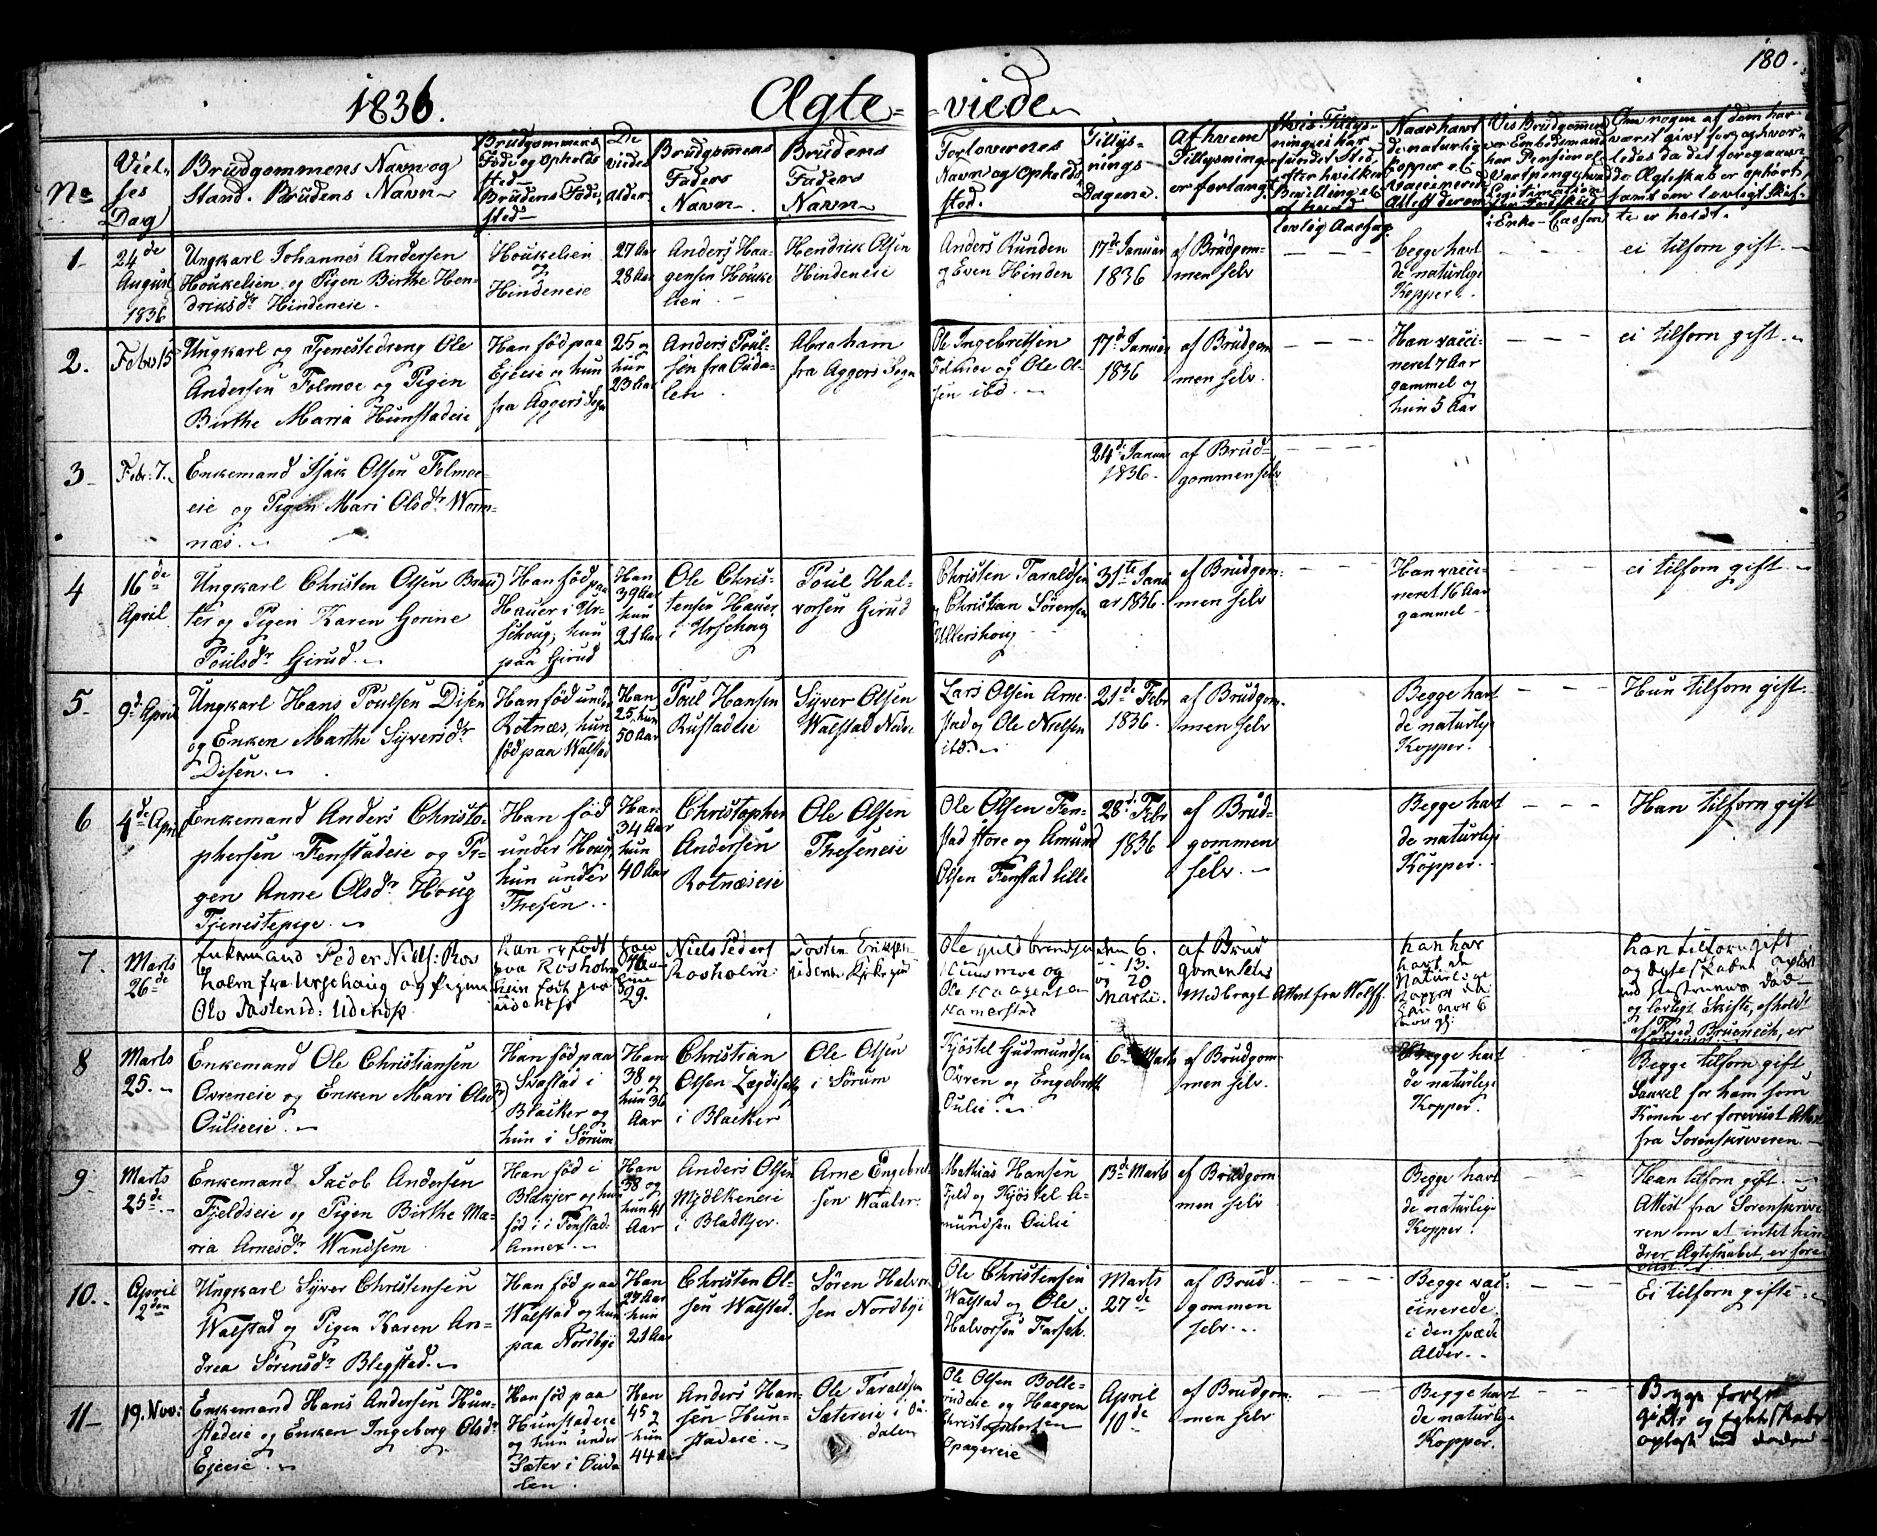 180.
1836. Ægte- viede
No
Viel-
ses
Dag
Brudgommens Navn og
Stand. Brudens Navn
Brudgommens
Føde og Opholds
sted
Brudens Føde-
sted
De
viedes
Alder
Brudgommens
Faders
Navn
Brudens
Faders
Navn
Forlovernes
Navn og Opholds
sted.
Tillys-
nings
Dagene.
Af hvem
Tillysningen
er forlangt
1.
24de
August
1836
Ungkarl Johannes Andersen
Houkelien og Pigen Birthe Hen-
driksdr Hindeneie.
Houkelien
og
Hindeneie
27 Aar
28 Aar
Anders Haa-
gensen Houke
lien
Hendrik Olsen
Hindeneie
Anders Runden
og Even Hinden
17de Januar
1836
af Brudgom-
men selv
begge havt
de naturlige
Kopper.
ei tilforn gift.
2.
Febr 5
Ungkarl og Tjenestedreng Ole
Andersen Folmoe og Pigen
Birthe Maria Hunstadeie
Han fød paa
Ejeeie og hun
fra Aggers Sogn
25 og
hun
23 Aar
Anders Poul-
sen fra Ouda-
len
Abraham
fra Aggers Sogn
Ole Ingebretsen
Folmoe og Ole Ol-
sen ibd.
17de Januar
1836
af Brudgom
men selv.
Han vacci-
neret 7 Aar
gammel og
hun 5 Aar
ei tilforn gift.
3
Febr: 7.
Enkemand Isak Olsen Folmoe-
eie og Pigen Mari Olsdr Worm-
næs.
24de Januar
1836.
af Brud-
gommen selv
4
16de
April
Ungkarl Christen Olsen
ter og Pigen Karen Gorine
Poulsdr Girud.
Han fød paa
Hauer i Ur-
schoug, hun
paa Girud
Han
39 Aar
hun
21 Aar
Ole Chris-
tensen Hauer
i Urschoug
Poul Hal-
vorsen Girud
Christen Taraldsen
Christian Sørensen
Ullershoug
31te Janu
ar 1836.
af Brudgom-
men selv
Han vacci-
neret 16 Aar
gammel
ei tilforn gift
5
9de April
Ungkarl Hans Poulsen Disen
og Enken Marthe Syversdr
Disen.
Han fød under
Rotnæs, hun
fød paa Walstad
Han
25, hun
50 Aar
Poul Hansen
Rustadeie
Syver Olsen
Walstad Nedre
Lars Olsen Arne-
stad og Ole Nielsen
ibd.
21de Febr
1836.
af Brudgom-
men selv
Begge havt
de naturlige
Kopper.
Hun tilforn gift.
6
4de April
Enkemand Anders Christo-
phersen Fenstadeie og Pi-
gen Anne Olsdr Houg
Tjenestepige.
Han fød
under Houg,
hun under
Thesen.
Han
34 Aar
hun
40 Aar
Christopher
Andersen
Rotnæseie
Ole Olsen
Theseneie
Ole Olsen Fen-
stad store og Amund
Olsen Fenstad lille
28de Febr
1836
af Brud-
gommen
selv.
Begge havt
de naturlige
Kopper.
Han tilforn gift
7.
Marts
26de
Enkemand Peder Niels: Ros
holm fra Urschoug og Pigen
Han er født
paa Rosholm
29.
Niels Peders
Rosholm
Ole Guldbrandsen
og
Ole Haagensen
Hamerstad
den 6.
13.
og 20
Marti.
af Brud
gomen selv
Medbragt Attest fra Wolff.
han har
havt de
Naturlige
Kopper
han tilforn gift
8
Marts
25.
Enkemand Ole Christiansen
Ovreneie og Enken Mari Olsdr
Oulieeie.
Han fød paa
Svafstad i
Blacker og
hun i Sørum
Han
38 og
hun 36
Aar
Christian
Olsen
i Blacker
Ole Olsen
i Sørum
Kjøstel Gudmundsen
Ovren og Engebreth
Oulie.
6te Marts
af Brudgom-
men selv.
Begge havt
de naturlige
Kopper.
Begge tilforn gift
for ham som
Konen er forevist Attest
fra Sorenskriveren.
9.
Marts
25de
Enkemand Jacob Andersen
Fjeldseie og Pigen Birthe Ma-
ria Arnesdr Wandsem
Han fød i
Blakjer og hun
fød i Fenstad
Annex.
Han
38 og
hun 41
Aar
Anders Olsen
Mjølkeneie
i Bladkjer.
Arne Engebret-
sen Waaler.
Mathias Hansen
Fjeld og Kjøstel A-
mundsen Oulie
13de Marts
af Brudgom
men selv
Begge havt
de naturlige
Kopper.
Han tilforn gift.
Attest fra Sorenskrive
ren om at intet hin-
drer Ægteskabet, er fore
vist.
10.
April
2den
Ungkarl Syver Christensen
Walstad og Pigen Karen An-
drea Sørensdr Blegstad.
Han fød paa
Walstad og hun
paa Nordbye
Han
27 Aar
hun
21 Aar
Christen Ol-
sen Walstad.
Søren Halvor
sen Nordbye
Ole Christensen
Walstad og Ole
Halvorsen Farseh.
Marts
27de
af Brud-
gommen
selv.
Begge vac-
cinerede
i den spæde
Alder.
Ei tilforn gifte.
11
19. Nov:
Enkemand Hans Andersen Hun-
stadeie og Enken Ingeborg Olsdr
Ejeeie.
Han fød paa
Hunstadeie
og hun under
Sæter i Ouda
len.
Han
45 og
hun
44 Aar
Anders Han-
sen Hun-
stadeie.
Ole Taraldsen
Sætereie i Ou-
dalen
Ole Olsen Bolle-
rudeie og Haagen
Christophersen
Spagereie
April
10de
af Brudgom-
men selv
Begge havt
de naturlige
Kopper.
Begge forhen
gifte og Egteskabet
opløst ved døden